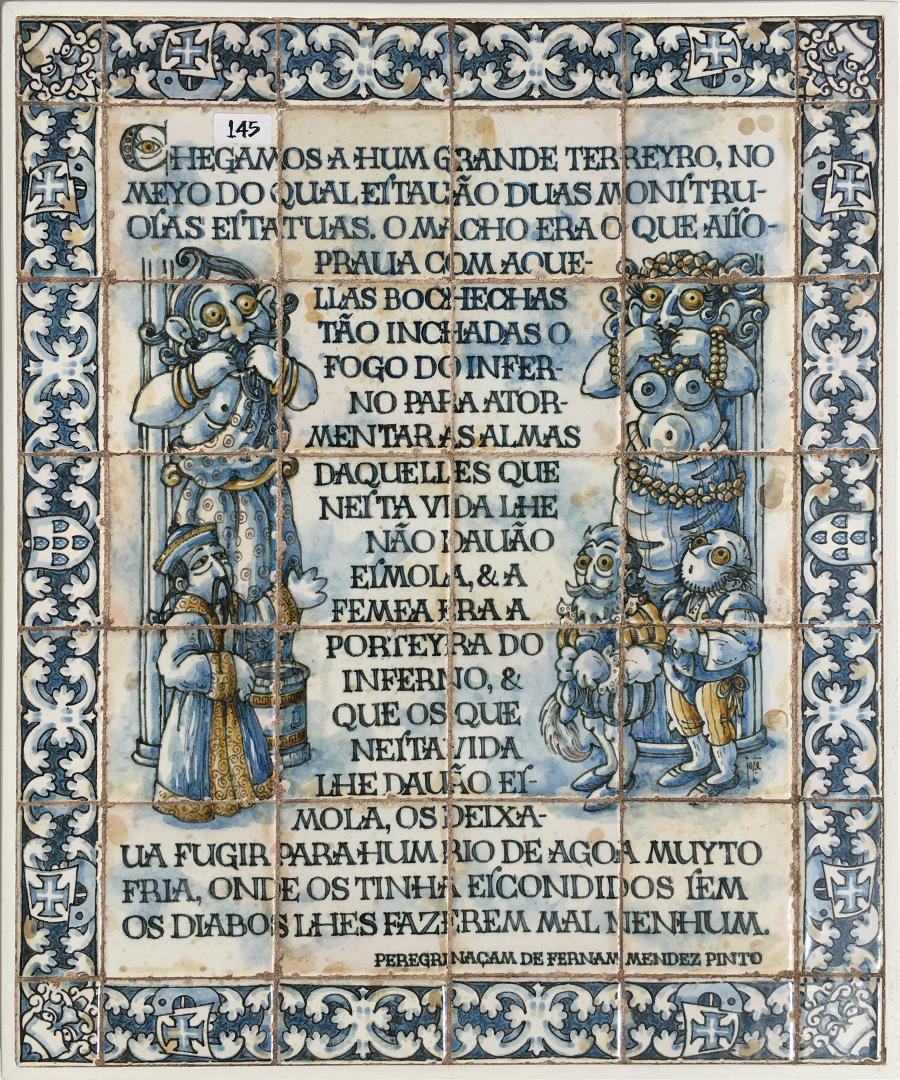 145
CHEGAMOS A HUM GRANDE TERREYRO, NO
MEYO DO QUAL EſTAUÃO DUAS MONſTRU-
OſAS EſTATUAS. O MACHO ERA O QUE AſſO-
PRAUA COM AQUE-
LLAS BOCHECHAS
TÃO INCHADAS O
FOGO DO INFER-
NO PARA ATOR-
MENTAR AS ALMAS
DAQUELLES QUE
NEſTA VIDA LHE
NÃO DAUÃO
EſMOLA, & A
FEMEA ERA A
PORTEYRA DO
INFERNO, &
QUE OS QUE
NEſTA VIDA
LHE DAUÃO Eſ-
MOLA, OS DEIXA-
UA FUGIR PARA HUM RIO DE AGOA MUYTO
FRIA, ONDE OS TINHA EſCONDIDOS ſEM
OS DIABOS LHES FAZEREM MAL NENHUM.
PEREGRINAÇAM DE FERNAM MENDEZ PINTO